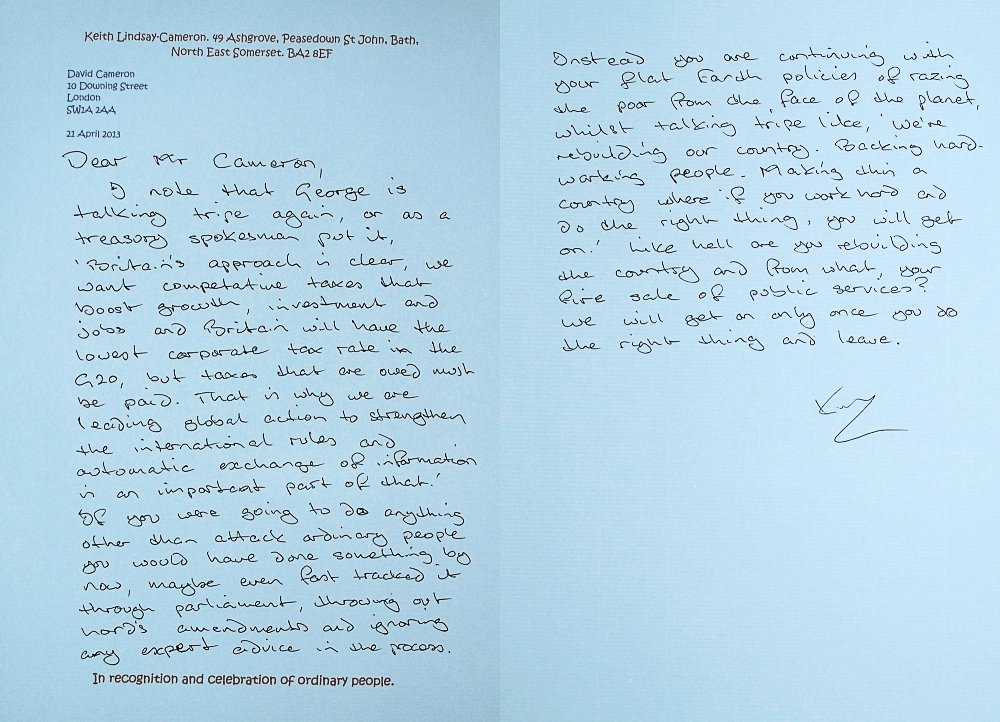 Keith Lindsay-Cameron. 49 Ashgrove, Peasedown St John, Bath,
North East Somerset. BA2 8EF
David Cameron
10 Downing Street
London
SW1A 2AA
21 April 2013
Dear Mr Cameron,
I note that George is
talking tripe again, or as a
treasury spokesman put it,
'Britain's approach is clear, we
want competative taxes that
boost growth, investment and
jobs and Britain will have the
lowest corporate tax rate in the
G20, but taxes that are owed must
be paid. That is why we are
leading global action to strengthen
the international rules and
automatic exchange of information
is an important part of that.'
If you were going to do anything
other than attack ordinary people
you would have done something by
now, maybe even fast tracked it
through parliament, throwing out
Lord's amendments and ignoring
any expert advice in the process.
In recognition and celebration of ordinary people.
Instead you are continuing with
your flat Earth policies of razing
the poor from the face of the planet,
whilst talking tripe like, 'We're
rebuilding our country. Backing hard-
working people. Making this a
country where if you work hard and
do the right thing, you will get
on.' Like hell are you rebuilding
the country and from what, your
fire sale of public services?
We will get on only once you do
the right thing and leave.